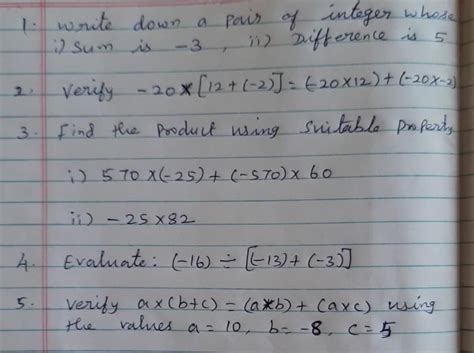 1. write down a pair of integer whose
i) Sum is -3, ii) Difference is 5
2. Verify -20×[12+(-2)]=(-20×12)+(-20×-2)
3. Find the Product using Suitable Property
i) 570×(-25)+(-570)×60
ii) -25×82
4. Evaluate: (-16)÷[(-13)+(-3)]
5. verify a×(b+c)=(a×b)+(a×c) using
the values a=10, b=-8, c=5